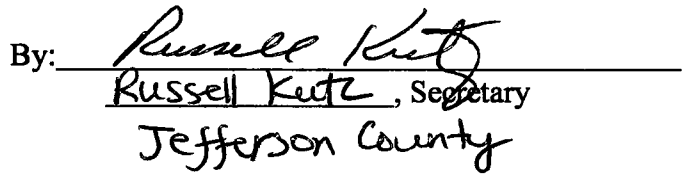 By: Russell Kutz
Russell Kutz, Secretary
Jefferson County